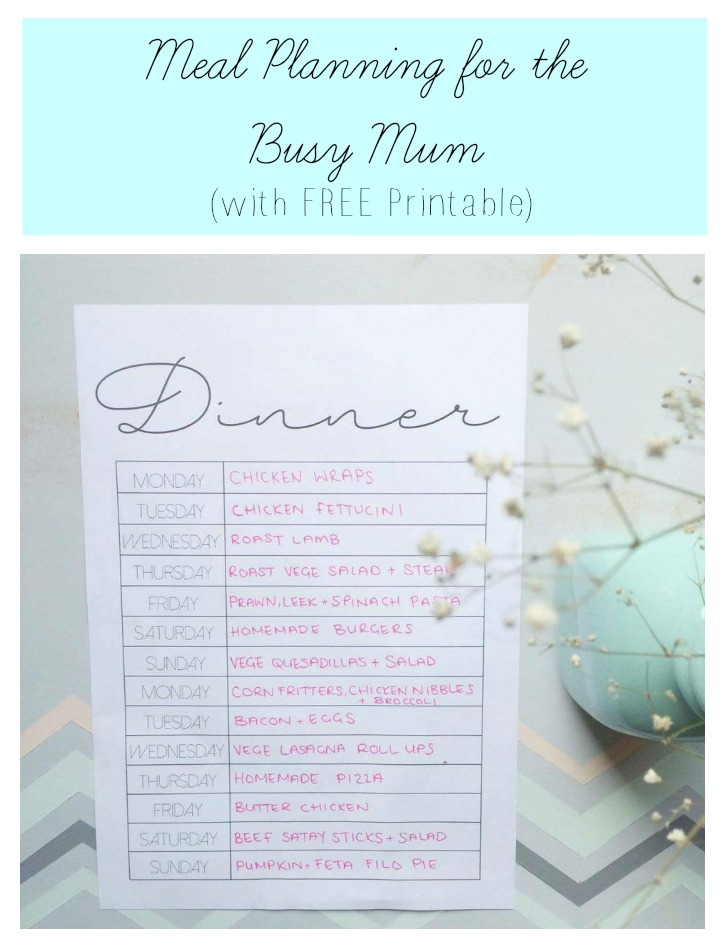 Meal Planning for the
Busy Mum
(with FREE Printable)
Dinner
MONDAY CHICKEN WRAPS
TUESDAY CHICKEN FETTUCINI
WEDNESDAY ROAST LAMB
THURSDAY ROAST VEGE SALAD +
FRIDAY PRAWN, LEEK + SPINACH PASTA
SATURDAY HOMEMADE BURGERS
SUNDAY VEGE QUESADILLAS + SALAD
MONDAY CORN FRITTERS, CHICKEN NIBBLES
+ BROCCOLI
TUESDAY BACON + EGGS
WEDNESDAY VEGE LASAGNA ROLL UPS
THURSDAY HOMEMADE PIZZA
FRIDAY BUTTER CHICKEN
SATURDAY BEEF SATAY STICKS + SALAD
SUNDAY PUMPKIN + FETA FILO PIE